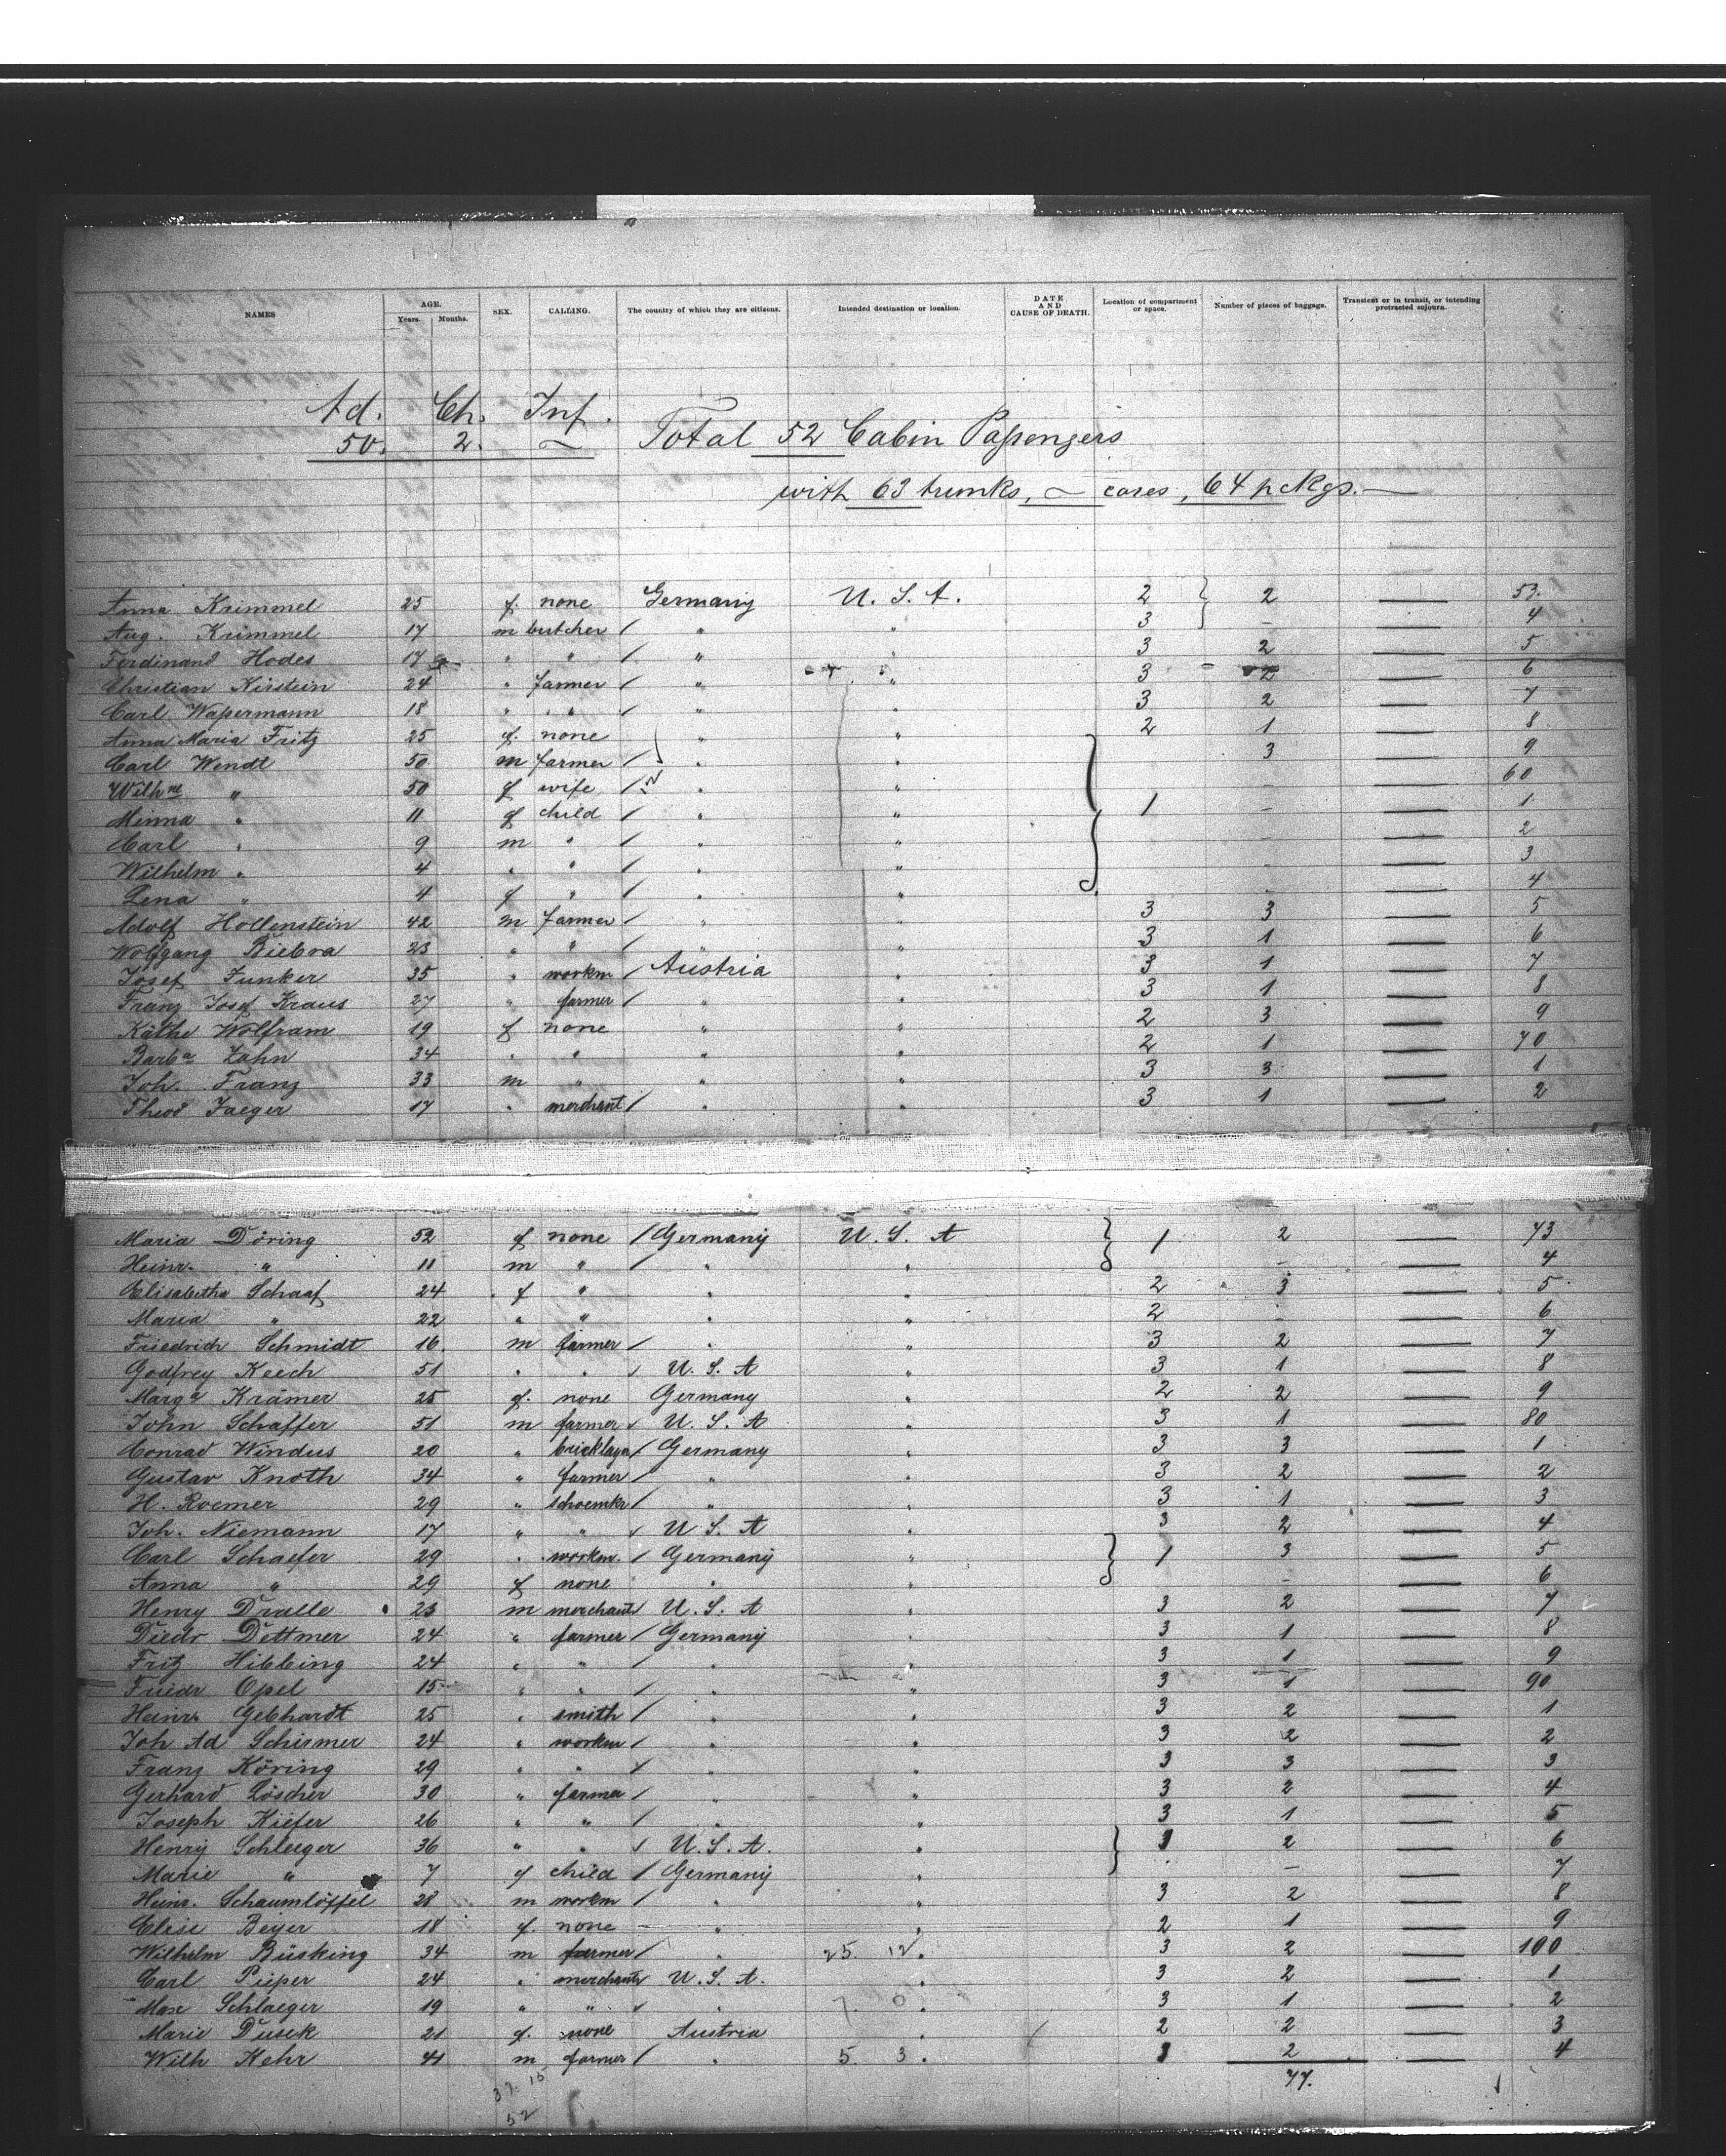 NAMES AGE. Years. Months. SEX. CALLING. The country of which they are citizens. Intended destination or location. DATE AND CAUSE OF DEATH. Location of compartment or space. Number of pieces of baggage. Transient or in transit, or intending protracted sojourn.
Ad. Ch. Inf.
50. 2. — Total 52 Cabin Passengers
with 63 trunks, — cases, 64 pckgs. —
Anna Krimmel 25 f. none Germany U. S. A. 2 2 — 53.
Aug. Krimmel 17 m butcher / " " 3 - — 4
Ferdinand Hodes 17 " " / " " 3 2 — 5
Christian Kirstein 24 " farmer / " " 3 2 — 6
Carl Wassermann 18 " " / " " 3 2 — 7
Anna Maria Fritz 25 f. none " " 2 1 — 8
Carl Wendt 50 m farmer / " " 3 — 9
Wilhne " 50 f wife / " " - — 60
Minna " 11 f child / " " 1 - — 1
Carl " 9 m " / " " - — 2
Wilhelm " 4 " " / " " - — 3
Lena " 4 f " / " " - — 4
Adolf Hollenstein 42 m farmer / " " 3 3 — 5
Wolfgang Biebra 23 " " / " " 3 1 — 6
Josef Junker 35 " workm / Austria " 3 1 — 7
Franz Josef Kraus 27 " farmer / " " 3 1 — 8
Käthe Wolfram 19 f none " " 2 3 — 9
Barba Zahn 34 " " " " 2 1 — 70
Joh. Franz 33 m " " " 3 3 — 1
Theod Jaeger 17 " merchant / " " 3 1 — 2
Maria Döring 52 f none / Germany U. S. A 1 2 — 73
Heinr. " 11 m " / " " - — 4
Elisabetha Schaaf 24 f " " " 2 3 — 5
Maria " 22 " " " " 2 - — 6
Friedrich Schmidt 16 m farmer / " " 3 2 — 7
Godfrey Keech 51 " " / U. S. A " 3 1 — 8
Marga Krämer 25 f. none Germany " 2 2 — 9
John Schaffer 51 m farmer / U. S. A " 3 1 — 80
Conrad Windus 20 " bricklayer / Germany " 3 3 — 1
Gustav Knoth 34 " farmer / " " 3 2 — 2
H. Roemer 29 " schoemkr / " " 3 1 — 3
Joh. Niemann 17 " " / U. S. A " 3 2 — 4
Carl Schaefer 29 " workm. / Germany " 1 3 — 5
Anna " 29 f none " " - — 6
Henry Dralle 23 m merchant / U. S. A " 3 2 — 7
Diedr Dettmer 24 " farmer / Germany " 3 1 — 8
Fritz Hibbing 24 " " / " " 3 1 — 9
Friedr Opel 15 " " / " " 3 1 — 90
Heinr. Gebhardt 25 " smith / " " 3 2 — 1
Joh Ad Schirmer 24 " workm / " " 3 2 — 2
Franz Köring 29 " " / " " 3 3 — 3
Gerhard Löscher 30 " farmer / " " 3 2 — 4
Joseph Kiefer 26 " " / " " 3 1 — 5
Henry Schleeger 36 " " / U. S. A. " 3 2 — 6
Marie " 7 f child / Germany " - — 7
Heinr. Schaumlöffel 28 m workm / " " 3 2 — 8
Elise Beyer 18 f. none " " 2 1 — 9
Wilhelm Büsking 34 m farmer / " 25. 12. 3 2 — 100
Carl Pieper 24 " merchant / U. S. A. " 3 2 — 1
Max Schlaeger 19 " " / " " 3 1 — 2
Marie Dusek 21 f. none Austria " 2 2 — 3
Wilh Kehr 41 m farmer / " 5. 3. 3 2 — 4
77.
37. 15
52